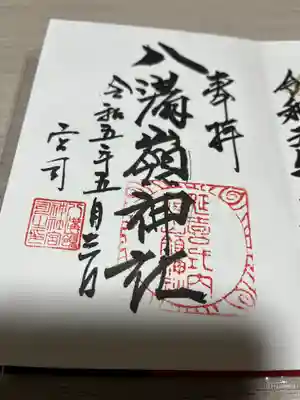 令和五
奉拝
八溝嶺神社
延喜式内
令和五年五月三日
宮司